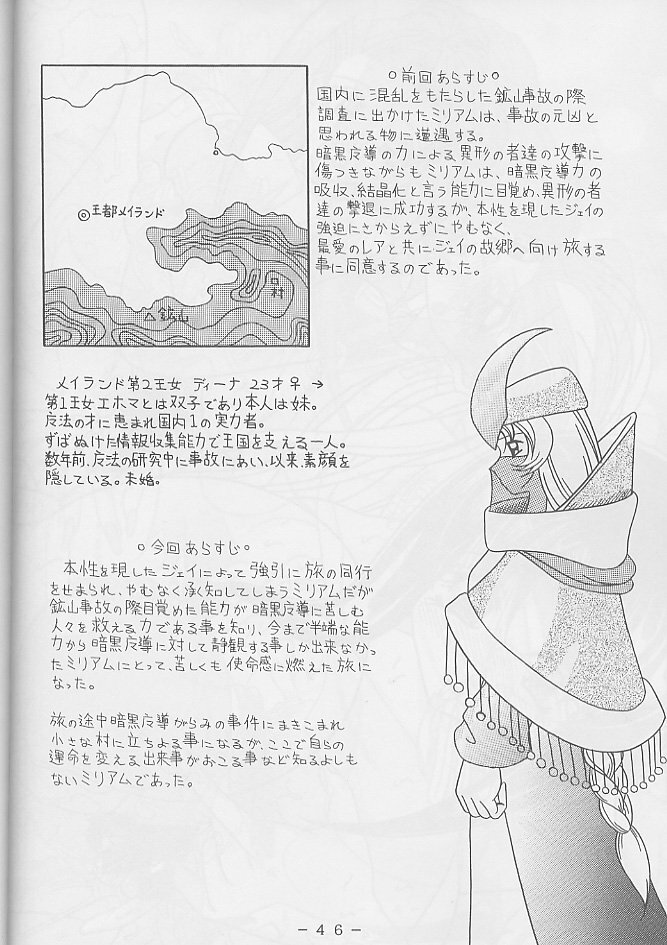 ○前回あらすじ○
国内に混乱をもたらした鉱山事故の際
調査に出かけたミリアムは、事故の元凶と
思われる物に遭遇する。
暗黒广導の力による異形の者達の攻撃に
傷つきながらもミリアムは、暗黒广導力の
吸収、結晶化と言う能力に目覚め、異形の者
達の撃退に成功するが、本性を現したジェイの
強迫にさからえずにやむなく、
最愛のレアと共にジェイの故郷へ向け旅する
事に同意するのであった。
◎王都メイランド
△鉱山
メイランド第2王女 ディーナ 23才♀→
第1王女エホマとは双子であり本人は妹。
广法の才に恵まれ国内1の実力者。
ずばぬけた情報収集能力で王国を支える一人。
数年前、广法の研究中に事故にあい、以来、素顔を
隠している。未婚。
○今回あらすじ○
本性を現したジェイによって強引に旅の同行
をせまられ、やむなく承知してしまうミリアムだが
鉱山事故の際目覚めた能力が暗黒广導に苦しむ
人々を救える力である事を知り、今まで半端な能
力から暗黒广導に対して静観する事しか出来なかっ
たミリアムにとって、苦しくも使命感に燃えた旅に
なった。
旅の途中暗黒广導がらみの事件にまきこまれ
小さな村に立ちよる事になるが、ここで自らの
運命を変える出来事がおこる事など知るよしも
ないミリアムであった。
－46－